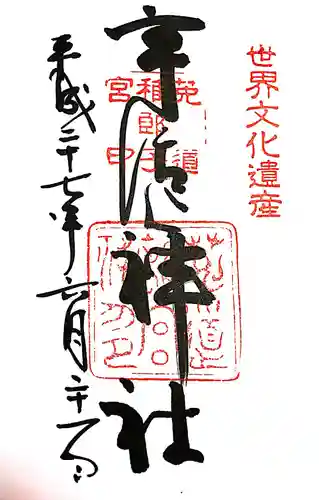 世界文化遺産
宇治神社
菟道
稚郎子
宮印
平成二十七年六月二十一日